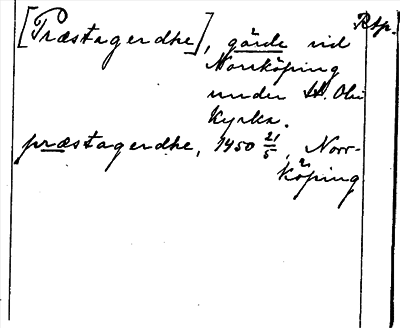 [Præstagerdhe], gärde vid Rsp.
Norrköping
under St. Olai
Kyrka.
præstagerdhe, 1450 21/5, Norr-
köping